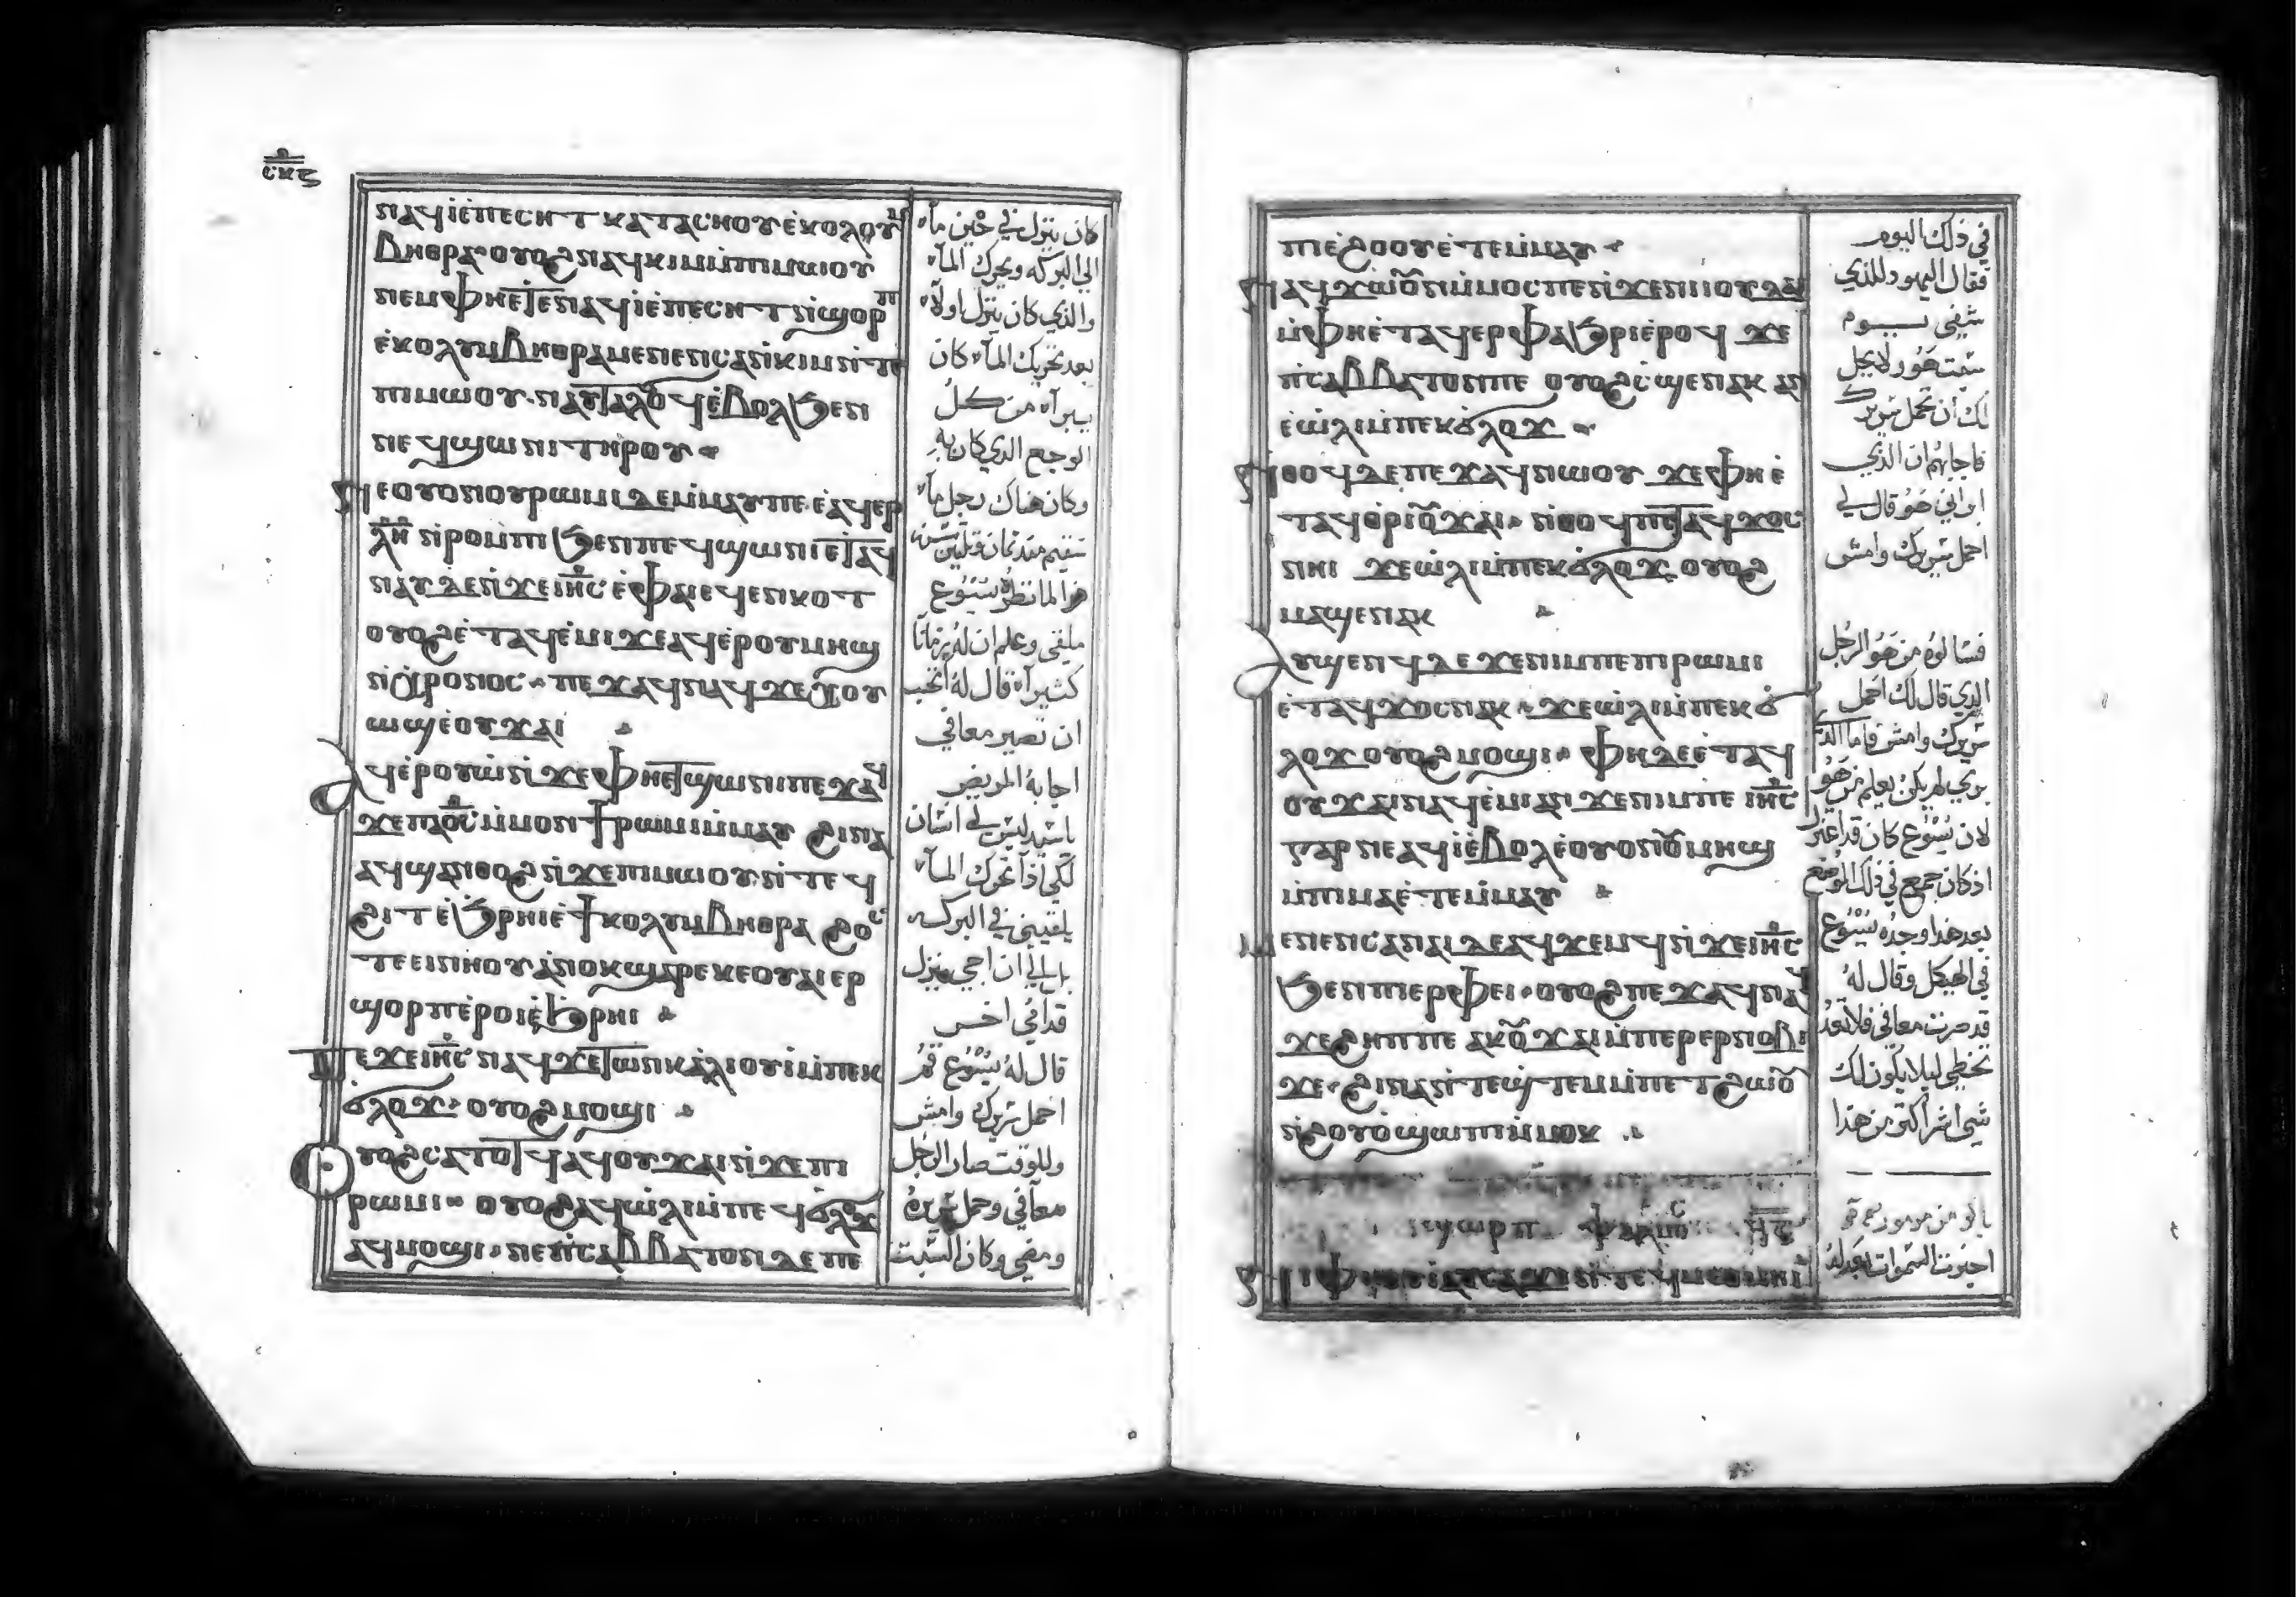 ⲥⲕⲍ
ⲛⲁϥⲓⲉ̀ⲡⲉⲥⲏⲧ ⲕⲁⲧⲁⲥⲛⲟⲩ ⲉ̀ⲕⲟⲗⲩⲙ
ⲃⲏⲑⲣⲁ ⲟⲩⲟϩ ⲛⲁϥⲕⲓⲙ ⲙ̀ⲡⲓⲙⲱⲟⲩ
ⲡⲉⲙ ⲫⲏⲉ̀ⲧⲉⲛⲁϥⲓⲉ̀ⲡⲉⲥⲏⲧ ⲛ̀ϣⲟⲣⲡ
ⲉ̀ⲕⲟⲗⲩⲙⲃⲏⲑⲣⲁ ⲙⲉⲛⲉⲛⲥⲁⲡⲓⲕⲓⲙ ⲛ̀ⲧⲉ
ⲡⲓⲙⲱⲟⲩ ⲛⲁⲩⲧⲁⲗϭⲟϥ ⲉ̀ⲃⲟⲗϧⲉⲛ
ⲡⲉϥϣⲱⲛⲓ ⲧⲏⲣⲟⲩ
ⲛⲉ ⲟⲩⲟⲛⲟⲩⲣⲱⲙⲓ ⲇⲉ ⲙ̀ⲙⲁⲩⲡⲉ ⲉ̀ⲁϥⲉⲣ
ⲗⲏ ⲛ̀ⲣⲟⲙⲡⲓ ϧⲉⲛⲡⲉϥϣⲱⲛⲓ ⲉ̀ⲧⲁϥ
ⲛⲁⲩ ⲇⲉ ⲛ̀ϫⲉ ⲓⲏⲥ ⲉ̀ⲫⲁⲓ ⲉϥⲉⲛⲕⲟⲧ
ⲟⲩⲟϩ ⲉ̀ⲧⲁϥⲉ̀ⲙⲓ ϫⲉ ⲁϥⲉ̀ⲣⲟⲩⲙⲏϣ
ⲛ̀ⲭⲣⲟⲛⲟⲥ ⲡⲉϫⲁϥⲛⲁϥ ϫⲉ ⲭⲟⲩ
ⲱϣ ⲉ̀ⲟⲩϫⲁⲓ
ⲁϥⲉ̀ⲣⲟⲩⲱ̀ ⲛ̀ϫⲉ ⲫⲏⲉ̀ⲧϣⲱⲛⲓ ⲡⲉϫⲁϥ
ϫⲉ ⲡⲁϭⲥ ⲙ̀ⲙⲟⲛϯⲣⲱⲙⲓ ⲙ̀ⲙⲁⲩ ϩⲓⲛⲁ
ⲁϥϣⲁⲛⲑⲟϩ ⲛ̀ϫⲉ ⲡⲓⲙⲱⲟⲩ ⲛ̀ⲧⲉϥ
ϩⲓⲧ ⲉ̀ϧⲣⲏⲓ ⲉ̀ϯⲕⲟⲗⲩⲙⲃⲏⲑⲣⲁ ϩⲟⲥ
ⲧⲉ ⲉⲓⲛⲏⲟⲩ ⲁ̀ⲛⲟⲕ ϣⲁⲣⲉ ⲕⲉⲟⲩⲁⲓ ⲉⲣ
ϣⲟⲣⲡ ⲉ̀ⲣⲟⲓ ⲉ̀ϧⲣⲏⲓ
ⲡⲉϫⲉ ⲓⲏⲥ ⲛⲁϥ ϫⲉ ⲧⲱⲛⲕ ⲁ̀ⲗⲓⲟⲩⲓ̀ ⲙ̀ⲡⲉⲕ
ϭⲗⲟϫ ⲟⲩⲟϩ ⲙⲟϣⲓ
ⲟⲩⲟϩ ⲥⲁⲧⲟⲧϥ ⲁϥⲟⲩϫⲁⲓ ⲛ̀ϫⲉ ⲡⲓ
ⲣⲱⲙⲓ ⲟⲩⲟϩ ⲁϥⲱ̀ⲗⲓ ⲙ̀ⲡⲉϥϭⲗⲟϫ
ⲁϥⲙⲟϣⲓ ⲛⲉ ⲡ̀ⲥⲁⲃⲃⲁⲧⲟⲛ ⲇⲉ ⲡⲉ
كان ينزل في حين ماء
الي البركه ويحرك الماء
والذي كان ينزل اولاً
بعد تحريك الماء كان
يبرأ من كل
الوجع الذي كان به
وكان هناك رجل
سقيم منذ ثمان وثلثين سنه
هذا لما نظره يسوع
ملقي وعلم ان له زماناً
كثيراً قال له اتحب
ان تصير معافي
اجابه المريض
ياسيد ليس لي انسان
لكي اذا تحرك الماء
يلقيني في البركه
بل الي ان اجي ينزل
قدامي اخر
قال له يسوع قم
احمل سريرك وامش
وللوقت صار الرجل
معافي وحمل سريره
ومضي وكان السبت
ⲡⲓⲉ̀ϩⲟⲟⲩ ⲉ̀ⲧⲉⲙ̀ⲙⲁⲩ
ⲛⲁϥϫⲱ ⲟⲩⲛ ⲙ̀ⲙⲟⲥ ⲡⲉ ⲛ̀ϫⲉ ⲛⲓⲓⲟⲩⲇⲁⲓ
ⲙ̀ⲫⲏⲉ̀ⲧⲁϥⲉⲣⲫⲁϧⲣⲓ ⲉ̀ⲣⲟϥ ϫⲉ
ⲡ̀ⲥⲁⲃⲃⲁⲧⲟⲛ ⲡⲉ ⲟⲩⲟϩ ⲥ̀ϣⲉ ⲛⲁⲕ ⲁⲛ
ⲉ̀ⲱ̀ⲗⲓ ⲙ̀ⲡⲉⲕϭⲗⲟϫ
ⲛⲑⲟϥ ⲇⲉ ⲡⲉϫⲁϥ ⲛⲱⲟⲩ ϫⲉ ⲫⲏⲉ̀
ⲧⲁϥⲑⲣⲓⲟⲩϫⲁⲓ ⲛ̀ⲑⲟϥ ⲡⲉⲧⲁϥϫⲟⲥ
ⲛⲏⲓ ϫⲉ ⲱ̀ⲗⲓ ⲙ̀ⲡⲉⲕϭⲗⲟϫ ⲟⲩⲟϩ
ⲙⲁϣⲉⲛⲁⲕ
ⲁⲩϣⲉⲛϥ ⲇⲉ ϫⲉ ⲛⲓⲙ ⲡⲉ ⲡⲓⲣⲱⲙⲓ
ⲉ̀ⲧⲁϥϫⲟⲥ ⲛⲁⲕ ϫⲉ ⲱ̀ⲗⲓ ⲙ̀ⲡⲉⲕϭ
ⲗⲟϫ ⲟⲩⲟϩ ⲙⲟϣⲓ ⲫⲏ ⲇⲉ ⲉ̀ⲧⲁϥ
ⲟⲩϫⲁⲓ ⲛⲁϥⲉ̀ⲙⲓ ⲁⲛ ϫⲉ ⲛⲓⲙ ⲡⲉ ⲓⲏⲥ
ⲅⲁⲣ ⲛⲉ ⲁϥⲓ ⲉ̀ⲃⲟⲗ ⲉ̀ⲟⲩⲟⲛ ⲟⲩⲙⲏϣ
ⲙ̀ⲡⲓⲙⲁ ⲉ̀ⲧⲉⲙ̀ⲙⲁⲩ
ⲙⲉⲛⲉⲛⲥⲁ ⲛⲁⲓ ⲇⲉ ⲁϥϫⲉⲙϥ ⲛ̀ϫⲉ ⲓⲏⲥ
ϧⲉⲛ ⲡⲓⲉⲣⲫⲉⲓ ⲟⲩⲟϩ ⲡⲉϫⲁϥ ⲛⲁϥ
ϫⲉ ϩⲏⲡⲡⲉ ⲁⲕⲟⲩϫⲁⲓ ⲙ̀ⲡⲉⲣⲉⲣⲛⲟⲃⲓ
ϫⲉ ϩⲓⲛⲁ ⲛ̀ⲧⲉϣⲧⲉⲙ ⲙ̀ⲡⲉⲧϩⲱⲟⲩ
ⲛ̀ϩⲟⲩⲟ̀ ϣⲱⲡⲓ ⲙ̀ⲙⲟⲕ
في ذلك اليوم
فقال اليهود للذي
شفي يوم
سبت هو ولا يحل
لك ان تحمل سريرك
فاجابهم ان الذي
ابراني هو قال لي
احمل سريرك وامش
فسالوه من هو الرجل
الذي قال لك احمل
سريرك وامش فاما الذي
بري لم يكن يعلم من هو
لان يسوع كان قد اعتزل
اذ كان جمع في ذلك الموضع
بعد هذا وجده يسوع
في الهيكل وقال له
قد صرت معافي فلا تعد
تخطي ليلا يكون لك
شي اشر اكثر من هذا
باكر من مزمور
اخبرت السموات بعدله